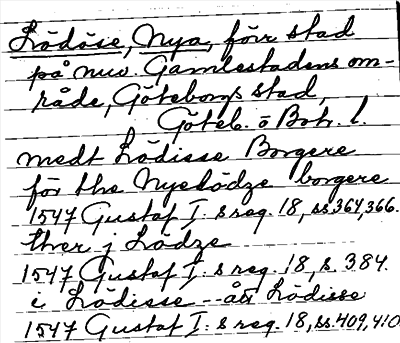 Lödöse, Nya, förr stad
på nuv. Gamlestadens om-
råde, Göteborgs stad,
Göteb. o Boh. l.
medt Lödisse Borgere
för the Nyelödze borgere
1547 Gustaf I: s reg. 18, ss. 364, 366.
ther j Lödze
1547 Gustaf I: s reg. 18, s. 384.
i Lödisse -- ått Lödisse
1547 Gustaf I: s reg. 18, ss. 409, 410